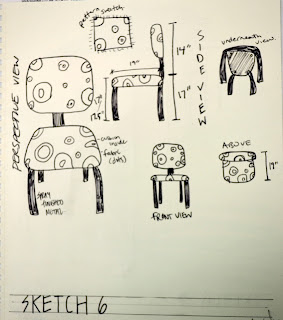 pattern swatch
PERSPECTIVE VIEW
19"
14"
17"
SIDE VIEW
underneath view.
17"
12.5"
custom made
fabric (dots)
SPRAY
PAINTED
METAL
FRONT VIEW
ABOVE
19"
SKETCH 6